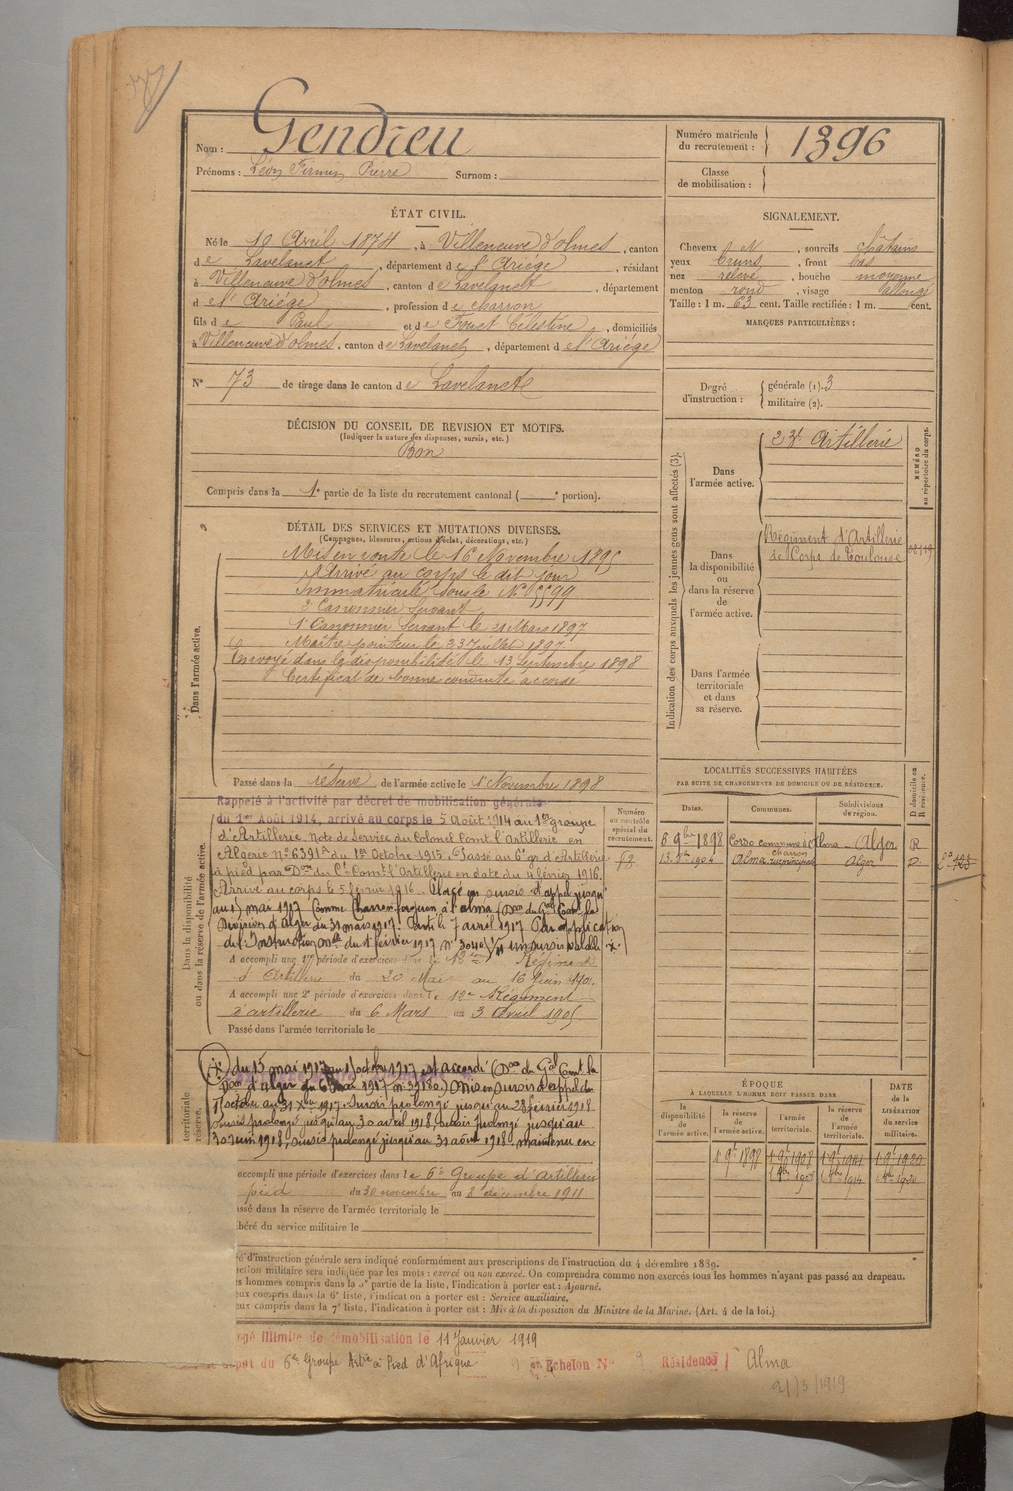 Nom : Gendreu
Prénoms : Léon Firmin Pierre Surnom :
Numéro matricule du recrutement : 1396
Classe de mobilisation :
ÉTAT CIVIL.
Né le 10 Avril 1874, à Villeneuve d'olmes, canton
de Lavelanet, département de l'Ariége, résidant
à Villeneuve d'olmes, canton de Lavelanet, département
d el'Ariége, profession de charron
fils de Paul et de Fouet Célestine, domiciliés
à Villeneuve d'olmes, canton de Lavelanet, département d el'Ariége
N° 73 de tirage dans le canton de Lavelanet
DÉCISION DU CONSEIL DE REVISION ET MOTIFS.
(Indiquer la nature des dispenses, sursis, etc.)
Bon
Compris dans la 1e partie de la liste du recrutement cantonal ( e portion).
SIGNALEMENT.
Cheveux N, sourcils châtains
yeux bruns, front bas
nez relevé, bouche moyenne
menton rond, visage allongé
Taille : 1 m. 63 cent. Taille rectifiée : 1 m. cent.
MARQUES PARTICULIÈRES :
Degré d'instruction : générale (1). 3
militaire (2).
DÉTAIL DES SERVICES ET MUTATIONS DIVERSES.
(Campagnes, blessures, actions d'éclat, décorations, etc.)
Dans l'armée active.
Mis en route le 16 Novembre 1895
Arrivé au corps le dit jour
Immatriculé sous le N° 5599
2e Canonnier Servant
1e Canonnier Servant le 21 Mars 1897
Maître pointeur le 23 Juillet 1897
Envoyé dans la disponibilité le 13 Septembre 1898
Certificat de bonne conduite accordé
Passé dans la réserve de l'armée active le 1r Novembre 1898
Dans la disponibilité ou dans la réserve de l'armée active.
Rappelé à l'activité par décret de mobilisation générale
du 1er Août 1914, arrivé au corps le 5 Août 1914 au 1er groupe
d'Artillerie, note de Service du Colonel Comt l'Artillerie en
Algérie n° 6391A du 1er Octobre 1915. Passé au 6e gr d'Artillerie
à pied par Don du Cl Comt l'Artillerie en date du 4 février 1916.
Arrivé au corps le 5 février 1916. Placé en sursis d'appel jusqu'
au 15 mai 1917 Comme Charron forgeron à l'alma (Don du Gal Comt la
Division d'Alger du 31 mars 1917. Parti le 7 avril 1917 Par application
de l'Instruction Mlle du 1r février 1917 n° 3040 1/11 un sursis valable
A accompli une 1re période d'exercices dans le 12ème Régiment
d'Artillerie du 20 Mai au 16 Juin 1901.
A accompli une 2e période d'exercices dans le 12e Régiment
d'artillerie du 6 Mars au 3 Avril 1905
Passé dans l'armée territoriale le
du 15 mai 1917 au 15 octobre 1917 est accordé (Don du Gal Comt la
Don d'Alger du 6 mai 1917 n° 3918o.) Mis en sursis d'appel du
15 octobre au 31 Xbre 1917. Sursis prolongé jusqu'au 28 février 1918
Sursis prolongé jusqu'au 30 avril 1918, sursis prolongé jusqu'au
30 juin 1918, sursis prolongé jusqu'au 31 août 1918 maintenu en
accompli une période d'exercices dans le 6e Groupe d'artillerie
pied du 30 novembre au 8 décembre 1911
assé dans la réserve de l'armée territoriale le
béré du service militaire le
Numéro au contrôle spécial du recrutement.
Indication des corps auxquels les jeunes gens sont affectés (3).
NUMÉRO au répertoire du corps.
Dans l'armée active.
23e Artillerie
Dans la disponibilité ou dans la réserve de l'armée active.
Régiment d'Artillerie
de Corps de Toulouse
Dans l'armée territoriale et dans sa réserve.
LOCALITÉS SUCCESSIVES HABITÉES
PAR SUITE DE CHANGEMENTS DE DOMICILE OU DE RÉSIDENCE.
Dates. Communes. Subdivisions de région. D domicile ou R résidence.
5 9bre 1898 Corso commune d'Alma Alger R
1904 Alma charron Alger
ÉPOQUE
À LAQUELLE L'HOMME DOIT PASSER DANS
la disponibilité de l'armée active. la réserve de l'armée active. l'armée territoriale. la réserve de l'armée territoriale. DATE de la LIBÉRATION du service militaire.
é d'instruction générale sera indiqué conformément aux prescriptions de l'instruction du 4 décembre 1889.
ction militaire sera indiquée par les mots : exercé ou non exercé. On comprendra comme non exercés tous les hommes n'ayant pas passé au drapeau.
s hommes compris dans la 5e partie de la liste, l'indication à porter est : Ajourné.
eux compris dans la 6e liste, l'indication à porter est : Service auxiliaire.
eux compris dans la 7e liste, l'indication à porter est : Mis à la disposition du Ministre de la Marine. (Art. 4 de la loi.)
ngé illimité de démobilisation le 11 Janvier 1919
dépôt du 6e Groupe Artie à Pied d'Afrique Echelon N° 9 Résidence Alma
21/3/1919